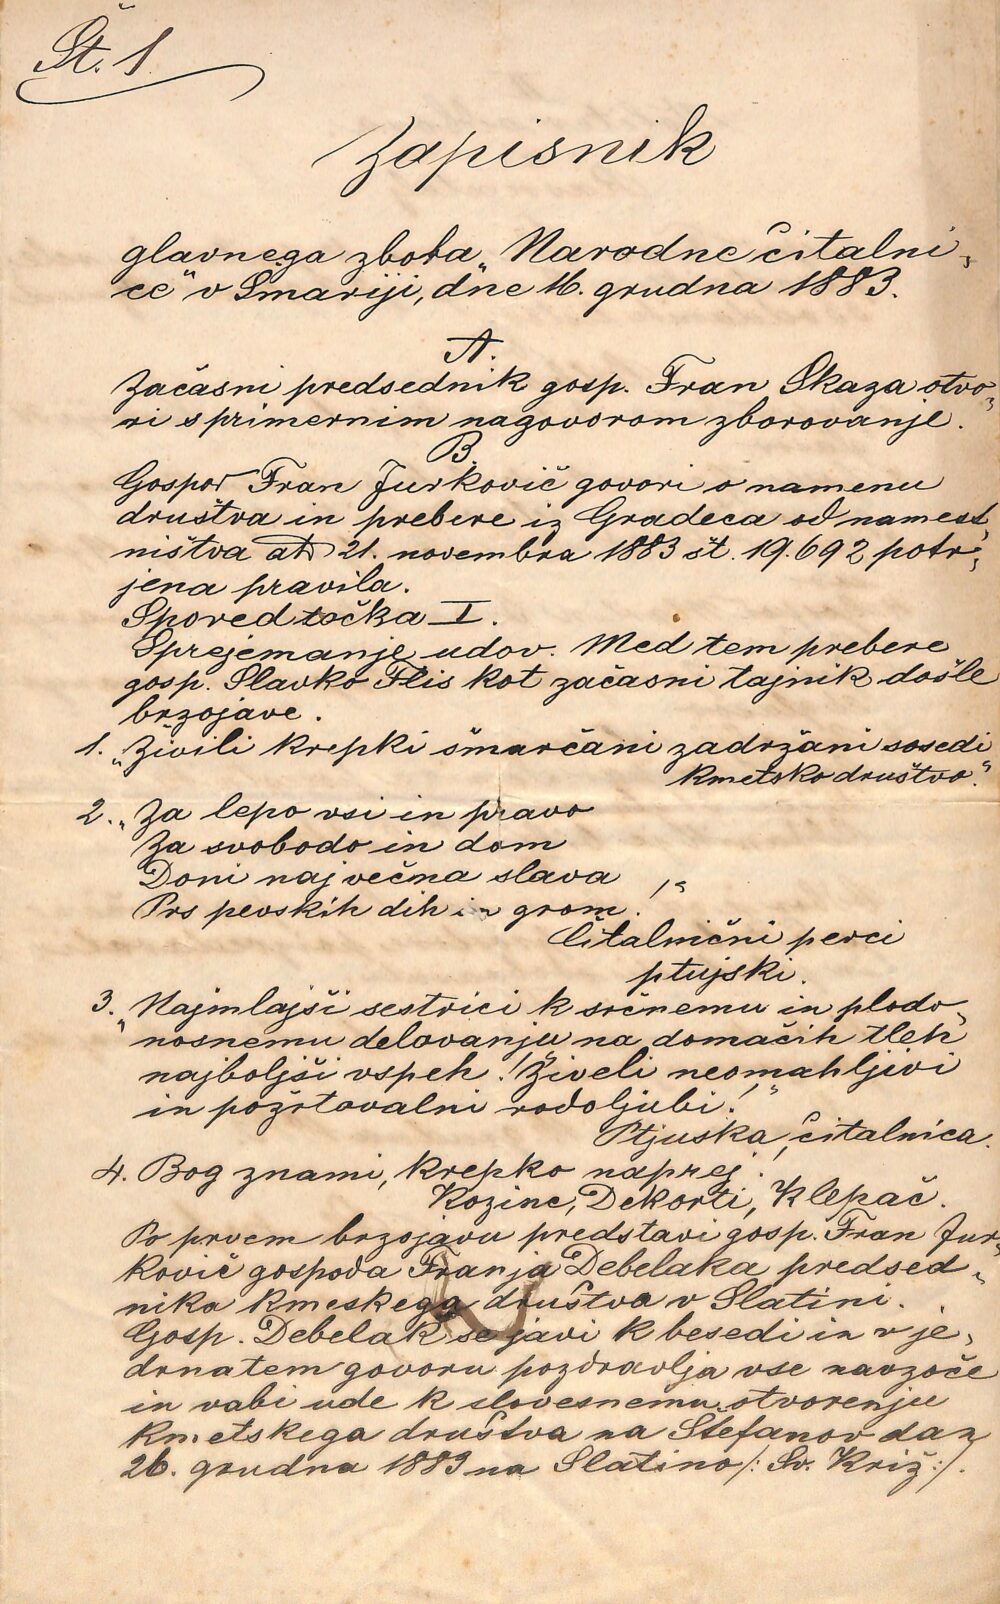 Št. 1
Zapisnik
glavnega zbora „Narodne čitalni-
ce“ v Šmariji, dne 16. grudna 1883.
A.
Začasni predsednik gosp. Fran Skaza otvo-
ri s primernim nagovorom zborovanje.
B.
Gospod Fran Jurkovič govori o namenu
društva in prebere iz Gradeca od namest-
ništva 21. novembra 1883 št. 19.692 potr-
jena pravila.
Spored točka I.
Sprejemanje udov. Med tem prebere
gosp. Slavko Flis kot začasni tajnik došle
brzojave.
1. „Živili krepki šmarčani zadržani sosedi
kmetsko društvo.“
2. „Za lepo vsi in pravo
Za svobodo in dom
Doni naj večma slava
Prs pevskih dih in grom!“
Čitalnični pevci
ptujski.
3. „Najmlajši sestrici k srčnemu in plodo-
nosnemu delovanju na domačih tleh
najboljši vspeh! Živeli neomahljivi
in požrtovalni rodoljubi!“
Ptjuska čitalnica.
4. Bog znami, krepko naprej!
Kozinc, Dekorti, Klepač.
Po prvem brzojavu predstavi gosp. Fran Jur-
kovič gospoda Franja Debelaka predsed-
nika kmeskega društva v Slatini.
Gosp. Debelak se javi k besedi in v je-
drnatem govoru pozdravlja vse navzoče
in vabi ude k slovesnemu otvorenju
kmetskega društva na Štefanov dan
26. grudna 1883 na Slatino /: Sv. Križ :/.